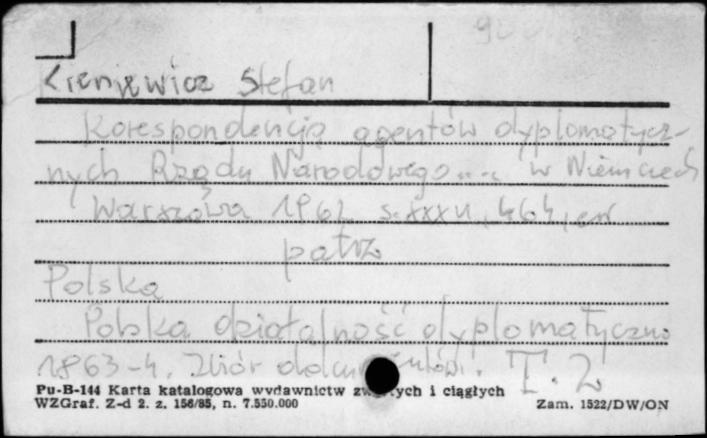 Kieniewicz Stefan
Korespondencja agentów dyplomatycz-
nych Rządu Narodowego... w Niemczech
Warszawa 1962 s. XXXVI, 464,
patrz
Polska
Polska działalność dyplomatyczna
1863-4. Zbiór dokumentów. T. 2
Pu-B-144 Karta katalogowa wydawnictw zwartych i ciągłych
WZGraf. Z-d 2. z. 156/85, n. 7.550.000 Zam. 1522/DW/ON